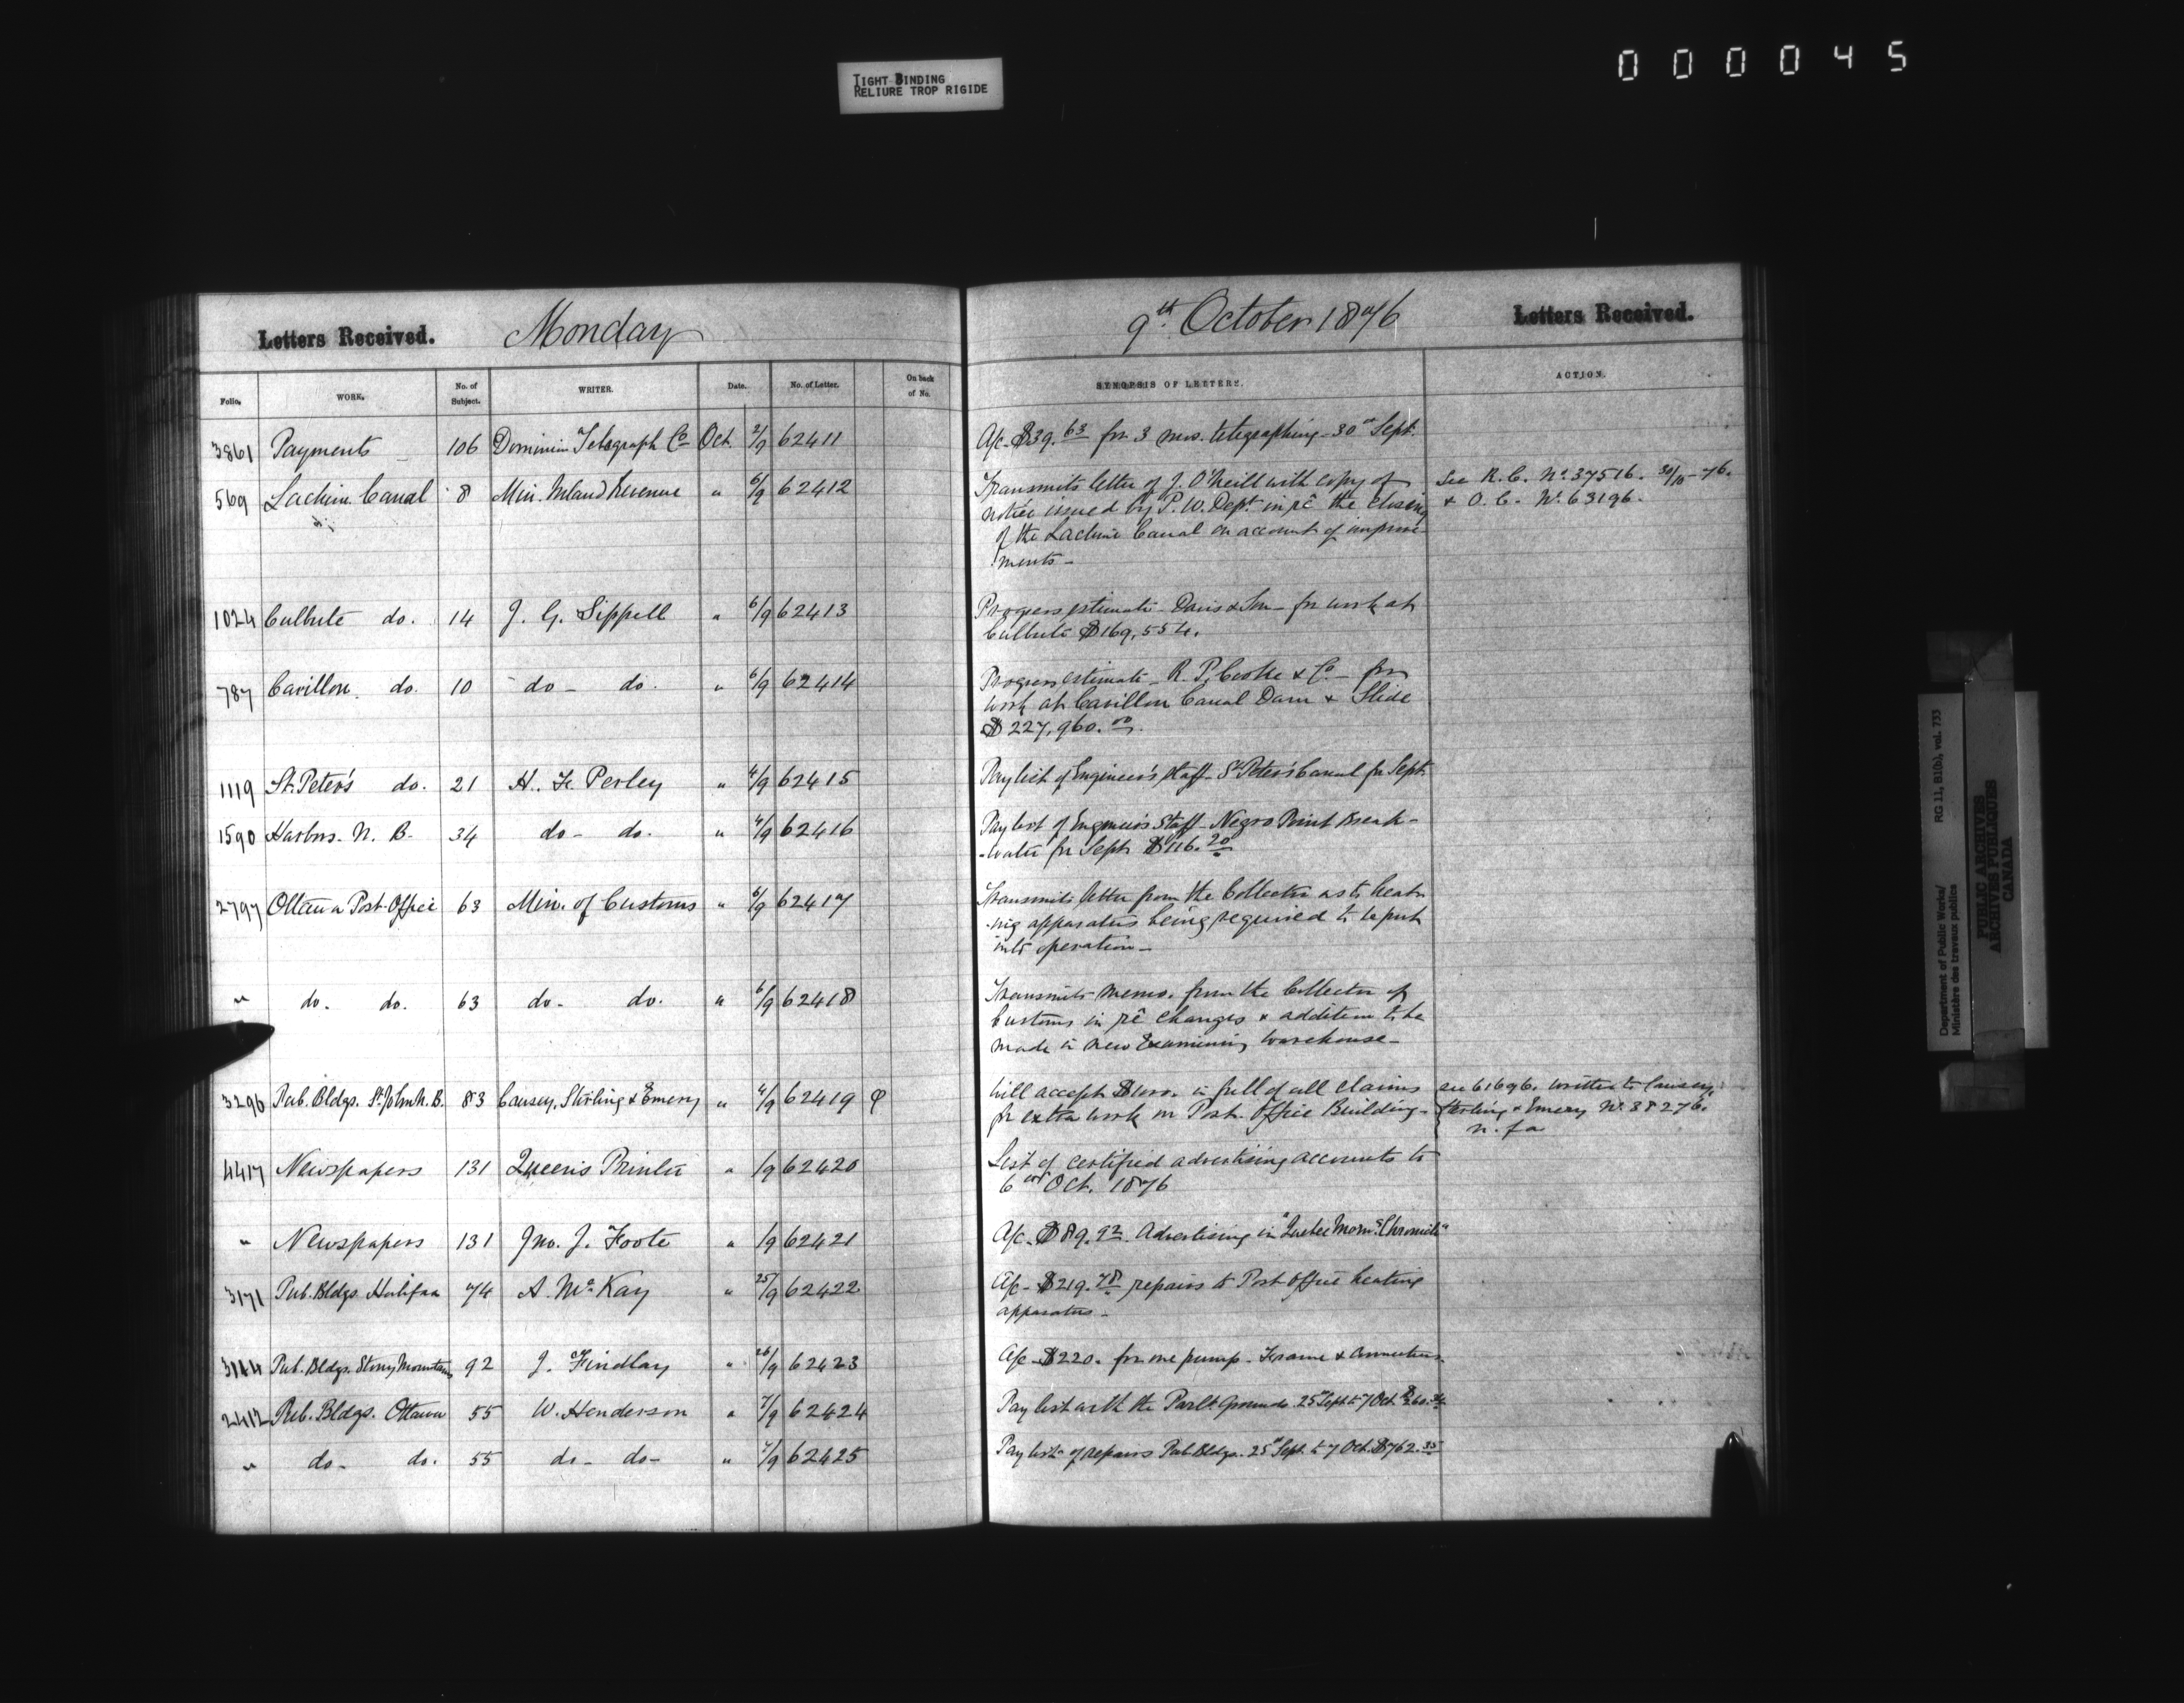 TIGHT BINDING
RELIURE TROP RIGIDE
000045
Letters Received. Monday 9th October 1876 Letters Received.
Folio. WORK. No. of Subject. WRITER. Date. No. of Letter. On back of No. SYNOPSIS OF LETTERS. ACTION.
3861 Payments 106 Dominion Telegraph Co Oct. 2/9 62411 A/c. $39.63 for 3 mos. telegraphing - 30th Sept.
569 Lachine Canal 8 Min. Inland Revenue " 6/9 62412 Transmits letter of J. O'Neill with copy of See R. C. No. 37516. 30/10-76.
notice issued by P. W. Dept. in re the closing & O. C. No. 63196.
of the Lachine Canal on account of improve
ments -
1024 Culbute do. 14 J. G. Sippell " 6/9 62413 Progress estimate - Davis & Son - for work at
Culbute $169,554.
787 Carillon. do. 10 do - do. " 6/9 62414 Progress estimate - R. P. Cooke & Co. - for
work at Carillon Canal Dam & Slide
$227,960.00
1119 St. Peter's do. 21 H. F. Perley " 4/9 62415 Pay list of Engineer's staff - St Peter's Canal for Sept.
1590 Harbors. N. B. 34 do - do. " 4/9 62416 Pay list of Engineer's Staff - Negro Point Break-
-water for Sept. $116.20
2797 Ottawa Post-Office 63 Min. of Customs " 6/9 62417 Transmits letter from the Collector as to heat-
-ing apparatus being required to be put
into operation -
" do. do. 63 do - do. " 6/9 62418 Transmits memo. from the Collector of
Customs in re changes & addition to be
made in new Examining warehouse -
3296 Pub. Bldgs. St. John N. B. 83 Causey, Stirling & Emery " 4/9 62419 φ Will accept $1000. in full of all claims see 61696. written to Causey,
for extra work on Post. Office Building - Sterling & Emery No. 38276.
n. f a
4417 Newspapers 131 Queen's Printer " /9 62420 List of certified advertising accounts to
6th Oct. 1876
" Newspapers 131 Jno. J. Foote " /9 62421 A/c. $89.92 Advertising in "Quebec Morng. Chronicle"
3171 Pub. Bldgs. Halifax 74 A. McKay " 25/9 62422 A/c - $219.78 repairs to Post-Office heating
apparatus -
Pub. Bldgs. Stony Mountain 92 J. Findlay " 26/9 62423 A/c - $220. for one pump - Frame & Connections
2412 Pub. Bldgs. Ottawa 55 W. Henderson " 7/9 62424 Pay list with the Parlt. Grounds. 25th Sept. to 7 Oct.
" do - do. 55 do - do - " 7/9 62425 Pay list of repairs Pub. Bldgs. 25th Sept. to 7 Oct. $762.35
Department of Public Works/ RG 11, B1(b), vol. 733
Ministère des travaux publics
PUBLIC ARCHIVES
ARCHIVES PUBLIQUES
CANADA